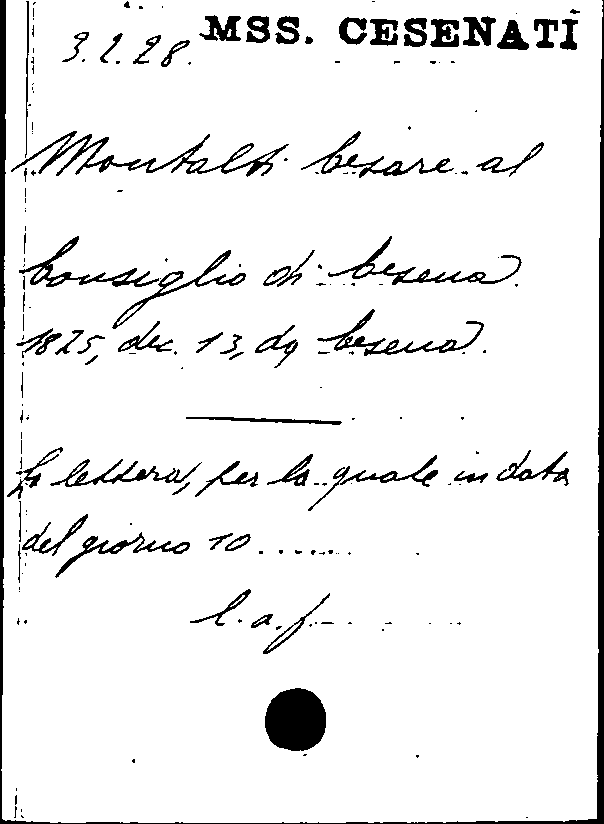 3.2.28. MSS. CESENATI
Montalti Cesare al
Consiglio di Cesena
1825, dec. 13, da Cesena.
La lettera, per la quale in data
del giorno 10......
l. a. f.